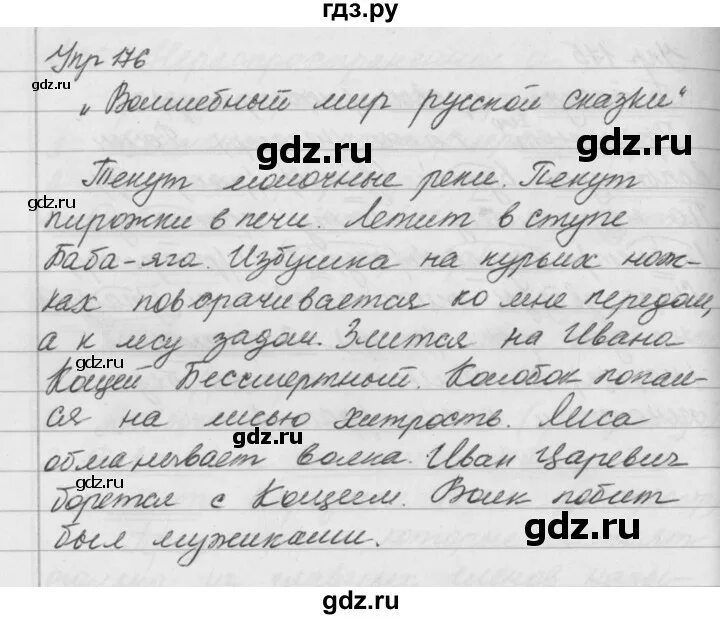 гдз.ру
Упр 176
„Волшебный мир русской сказки“
Текут молочные реки. Пекут
пирожки в печи. Летит в ступе
Баба-яга. Избушка на курьих нож-
ках поворачивается ко мне передом,
а к лесу задом. Злится на Ивана
Кощей Бессмертный. Колобок попал-
ся на лисью хитрость. Лиса
обманывает волка. Иван Царевич
борется с Кощеем. Волк побит
был мужиками.
gdz.ru
gdz.ru
gdz.ru
gdz.ru
gdz.ru
gdz.ru
gdz.ru
gdz.ru
gdz.ru
gdz.ru
gdz.ru
gdz.ru
gdz.ru